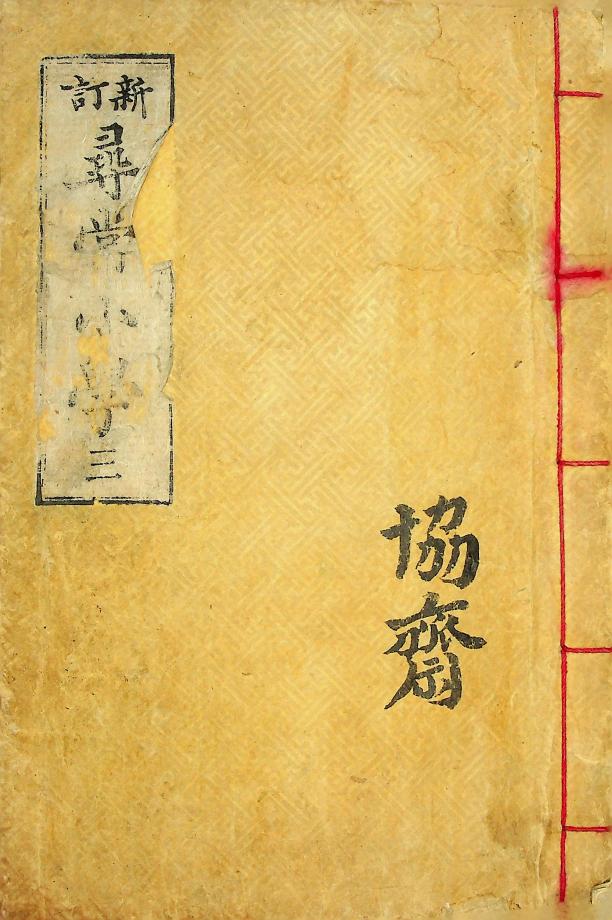 新訂
尋常小學 三
協齋